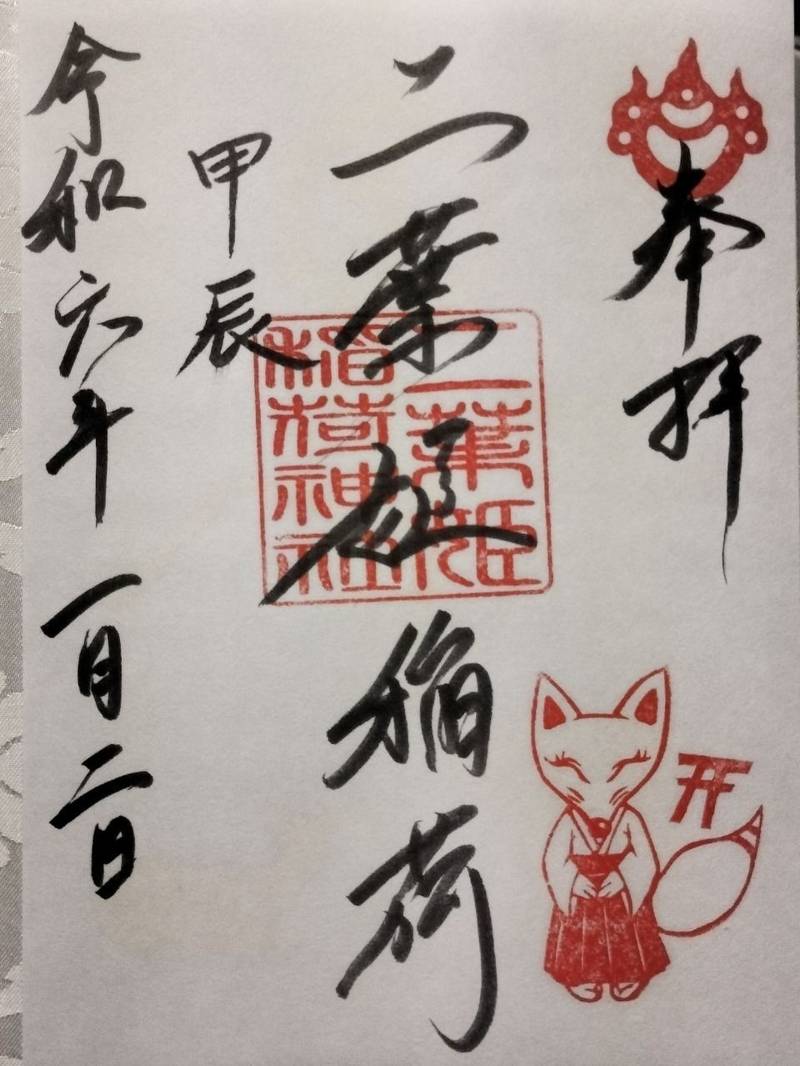 奉拝
二葉姫稲荷
二葉姫
稲荷神社
甲辰
令和六年 一月二日